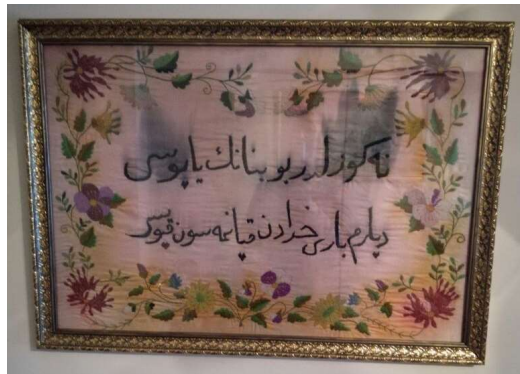 نه كوزلدر بو بنانك ياپوسى
ديلرم بارى خدادن قپانمه سون قپوسى